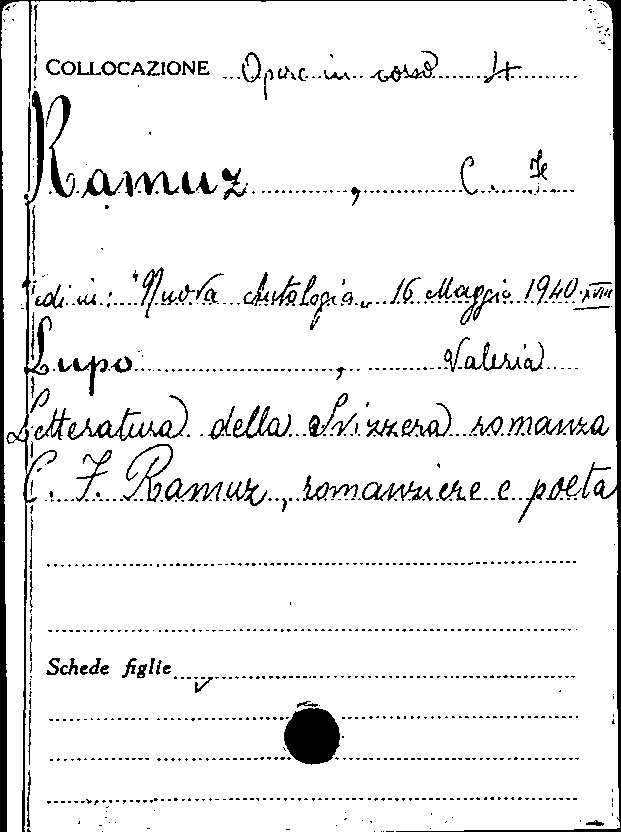 COLLOCAZIONE Opere in corso 4
Ramuz, C. F.
Vedi in: "Nuova Antologia„ 16 Maggio 1940-XVIII
Lupo, Valeria
Letteratura della Svizzera romanza
C. F. Ramuz, romanziere e poeta
Schede figlie
✓